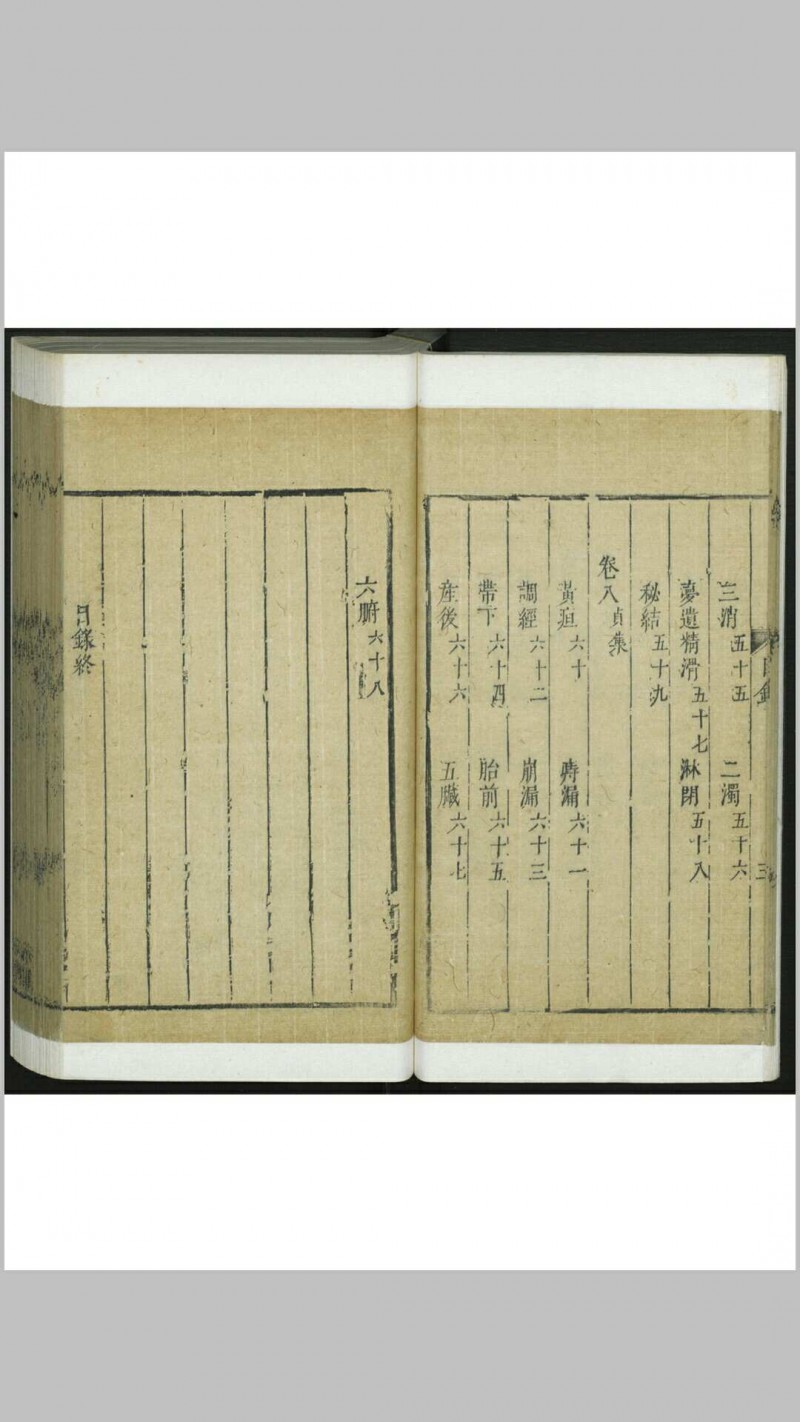 目錄 三
三消 五十五 二濁 五十六
夢遺精滑 五十七 淋閉 五十八
秘結 五十九
卷八 貞集
黃疸 六十 痔漏 六十一
調經 六十二 崩漏 六十三
帶下 六十四 胎前 六十五
產後 六十六 五臟 六十七
六腑 六十八
目錄終